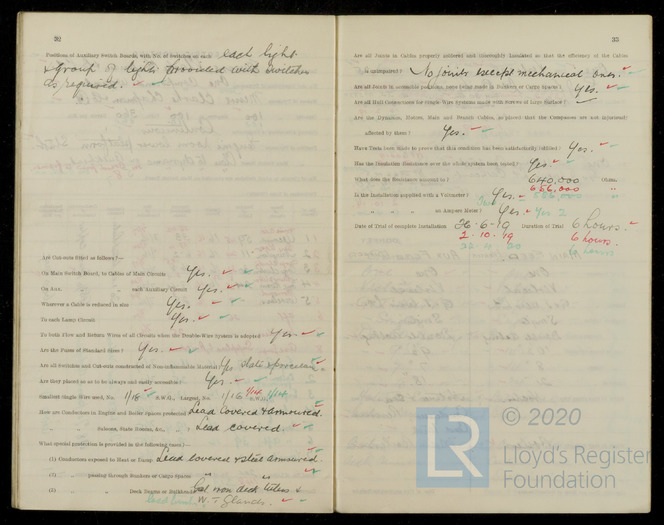 32
Positions of Auxiliary Switch Boards, with No. of Switches on each each light
& group of lights provided with switches
as required.
Are Cut-outs fitted as follows?—
On Main Switch Board, to Cables of Main Circuits Yes.
On Aux. " " each Auxiliary Circuit Yes.
Wherever a Cable is reduced in size Yes.
To each Lamp Circuit Yes.
To both Flow and Return Wires of all Circuits when the Double-Wire System is adopted Yes.
Are the Fuses of Standard Sizes? Yes.
Are all Switches and Cut-outs constructed of Non-inflammable Material? Yes slate & porcelain.
Are they placed so as to be always and easily accessible? Yes.
Smallest Single Wire used, No. 1/18 S.W.G., Largest, No. 1/16 1/14 1/14
How are Conductors in Engine and Boiler Spaces protected Lead Covered & armoured.
" " Saloons, State Rooms, &c., " Lead covered.
What special protection is provided in the following cases?—
(1) Conductors exposed to Heat or Damp Lead covered & steel armoured
(2) " passing through Bunkers or Cargo Spaces " "
(3) " " Deck Beams or Bulkheads Cast iron deck tubes &
W. T. Glands.
33
Are all Joints in Cables properly soldered and thoroughly insulated so that the efficiency of the Cables
is unimpaired? No joints except mechanical ones.
Are all Joints in accessible positions, none being made in Bunkers or Cargo Spaces? Yes.
Are all Hull Connections for Single Wire Systems made with Screws of Large Surface?
Are the Dynamos, Motors, Main and Branch Cables, so placed that the Compasses are not injuriously
affected by them? Yes.
Have Tests been made to prove that this condition has been satisfactorily fulfilled? Yes.
Has the Insulation Resistance over the whole system been tested? Yes
What does the Resistance amount to? 640,000 Ohms.
656,000 "
Is the Installation supplied with a Voltmeter? Yes.
" " " an Ampere Meter? Yes. Yes 2
Date of Trial of complete Installation 26-6-19 Duration of Trial 6 hours.
2-10-19 6 hours.
© 2020
LR
Lloyd's Register
Foundation